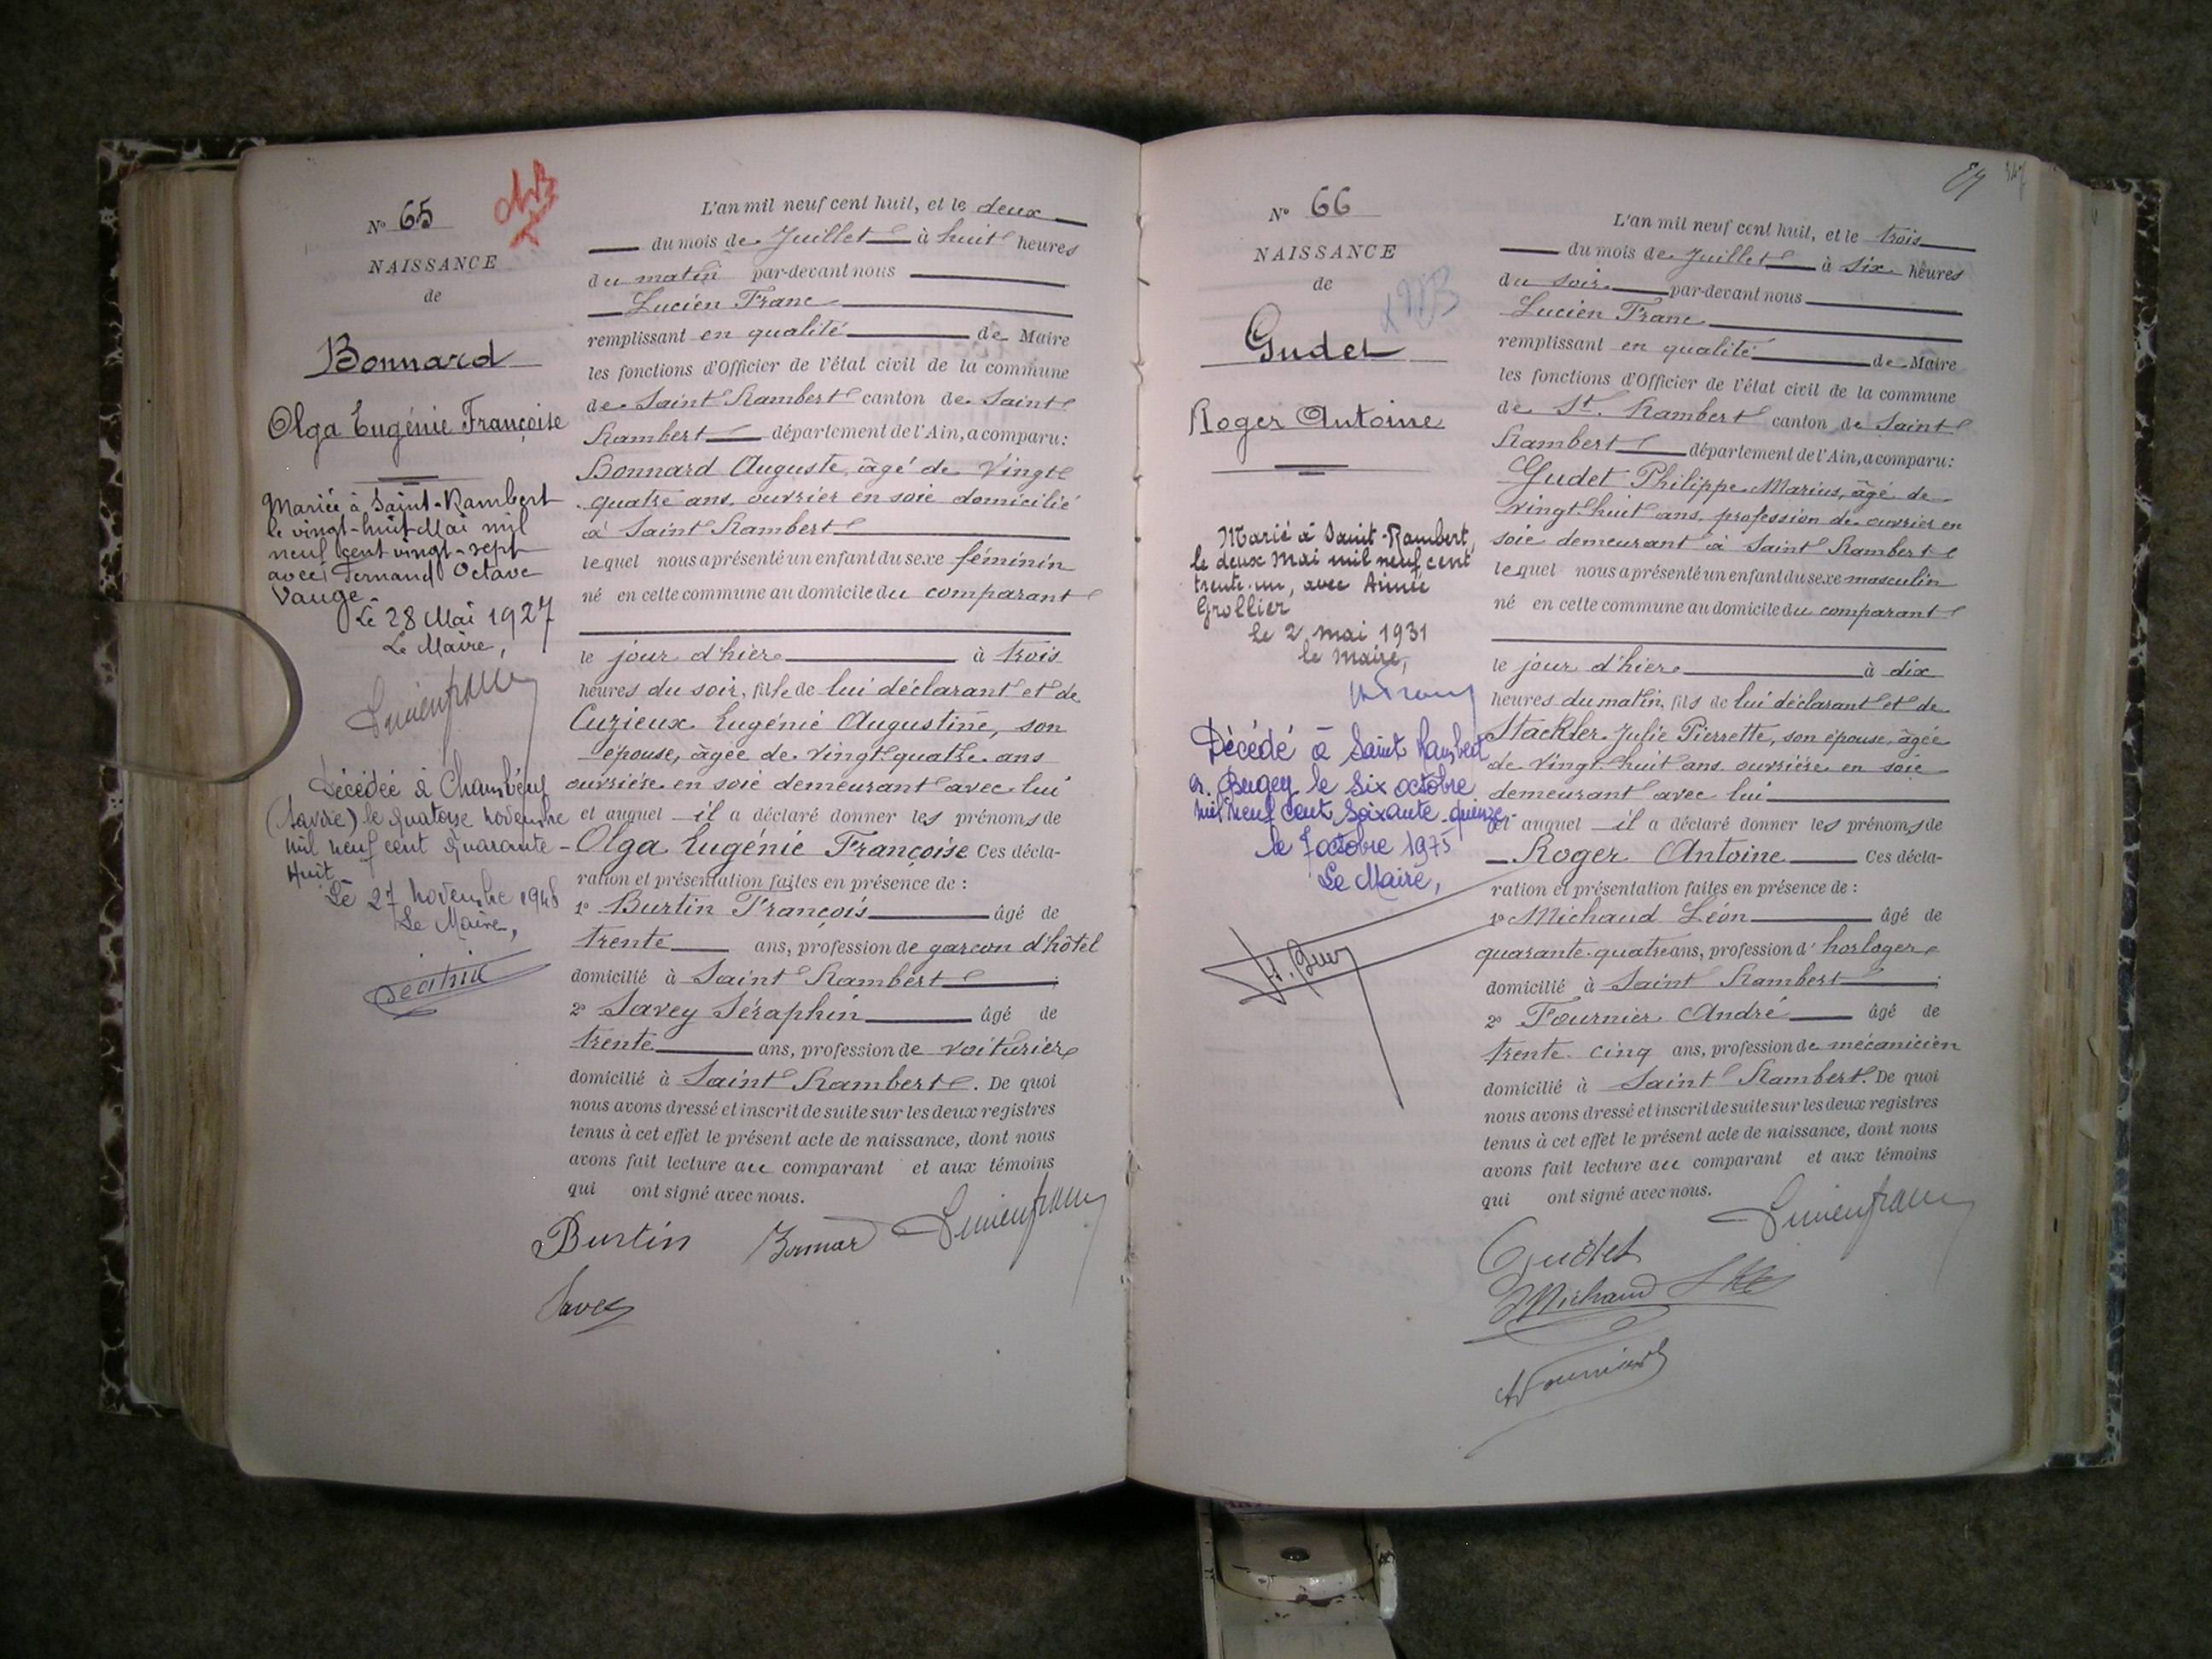 N° 65
NAISSANCE
de
Bonnard
Olga Eugénie Françoise
Mariée à Saint-Rambert
le vingt-huit Mai mil
neuf cent vingt-sept
avec Fernand Octave
Vauge.
Le 28 Mai 1927
Le Maire,
Lucien franc
Décédée à
(Savoie) le quatorze novembre
mil neuf cent quarante-
Huit
Le 27 novembre 1948
Le Maire,
L'an mil neuf cent huit, et le deux
du mois de Juillet à huit heures
du matin par-devant nous
Lucien Franc
remplissant en qualité de Maire
les fonctions d'Officier de l'état civil de la commune
de Saint Rambert canton de Saint
Rambert département de l'Ain, a comparu:
Bonnard Auguste, âgé de vingt
quatre ans, ouvrier en soie domicilié
à Saint Rambert
lequel nous a présenté un enfant du sexe féminin
né en cette commune au domicile du comparant
le jour d'hier à trois
heures du soir, fille de lui déclarant et de
Cuzieux Eugénie Augustine, son
épouse, âgée de vingt quatre ans
ouvrière en soie demeurant avec lui
et auquel il a déclaré donner les prénoms de
Olga Eugénie Françoise Ces décla-
ration et présentation faites en présence de :
1° Burtin François âgé de
trente ans, profession de garcon d'hôtel
domicilié à Saint Rambert ;
2° Savey Séraphin âgé de
trente ans, profession de voiturier
domicilié à Saint Rambert. De quoi
nous avons dressé et inscrit de suite sur les deux registres
tenus à cet effet le présent acte de naissance, dont nous
avons fait lecture au comparant et aux témoins
qui ont signé avec nous.
Burtin Bonnard Lucien franc
Savey
N° 66
NAISSANCE
de
Gudet
Roger Antoine
Marié à Saint-Rambert,
le deux Mai mil neuf cent
trente-un, avec Aimée
Grollier
le 2 mai 1931
le maire,
Décédé à Saint Rambert
en Bugey le six octobre
mil neuf cent soixante-quinze
le 7 octobre 1975
Le Maire,
L'an mil neuf cent huit, et le trois
du mois de Juillet à six heures
du soir par-devant nous
Lucien Franc
remplissant en qualité de Maire
les fonctions d'Officier de l'état civil de la commune
de St. Rambert canton de Saint
Rambert département de l'Ain, a comparu:
Gudet Philippe Marius, âgé de
vingt huit ans, profession de ouvrier en
soie demeurant à Saint Rambert
lequel nous a présenté un enfant du sexe masculin
né en cette commune au domicile du comparant
le jour d'hier à dix
heures du matin, fils de lui déclarant et de
Stackler Julie Pierrette, son épouse, âgée
de vingt huit ans ouvrière en soie
demeurant avec lui
et auquel il a déclaré donner les prénoms de
Roger Antoine Ces décla-
ration et présentation faites en présence de :
1° Michaud Léon âgé de
quarante-quatre ans, profession d'horloger
domicilié à Saint Rambert ;
2° Fournier André âgé de
trente-cinq ans, profession de mécanicien
domicilié à Saint Rambert. De quoi
nous avons dressé et inscrit de suite sur les deux registres
tenus à cet effet le présent acte de naissance, dont nous
avons fait lecture au comparant et aux témoins
qui ont signé avec nous.
Lucien franc
Gudet
Michaud
A Fournier